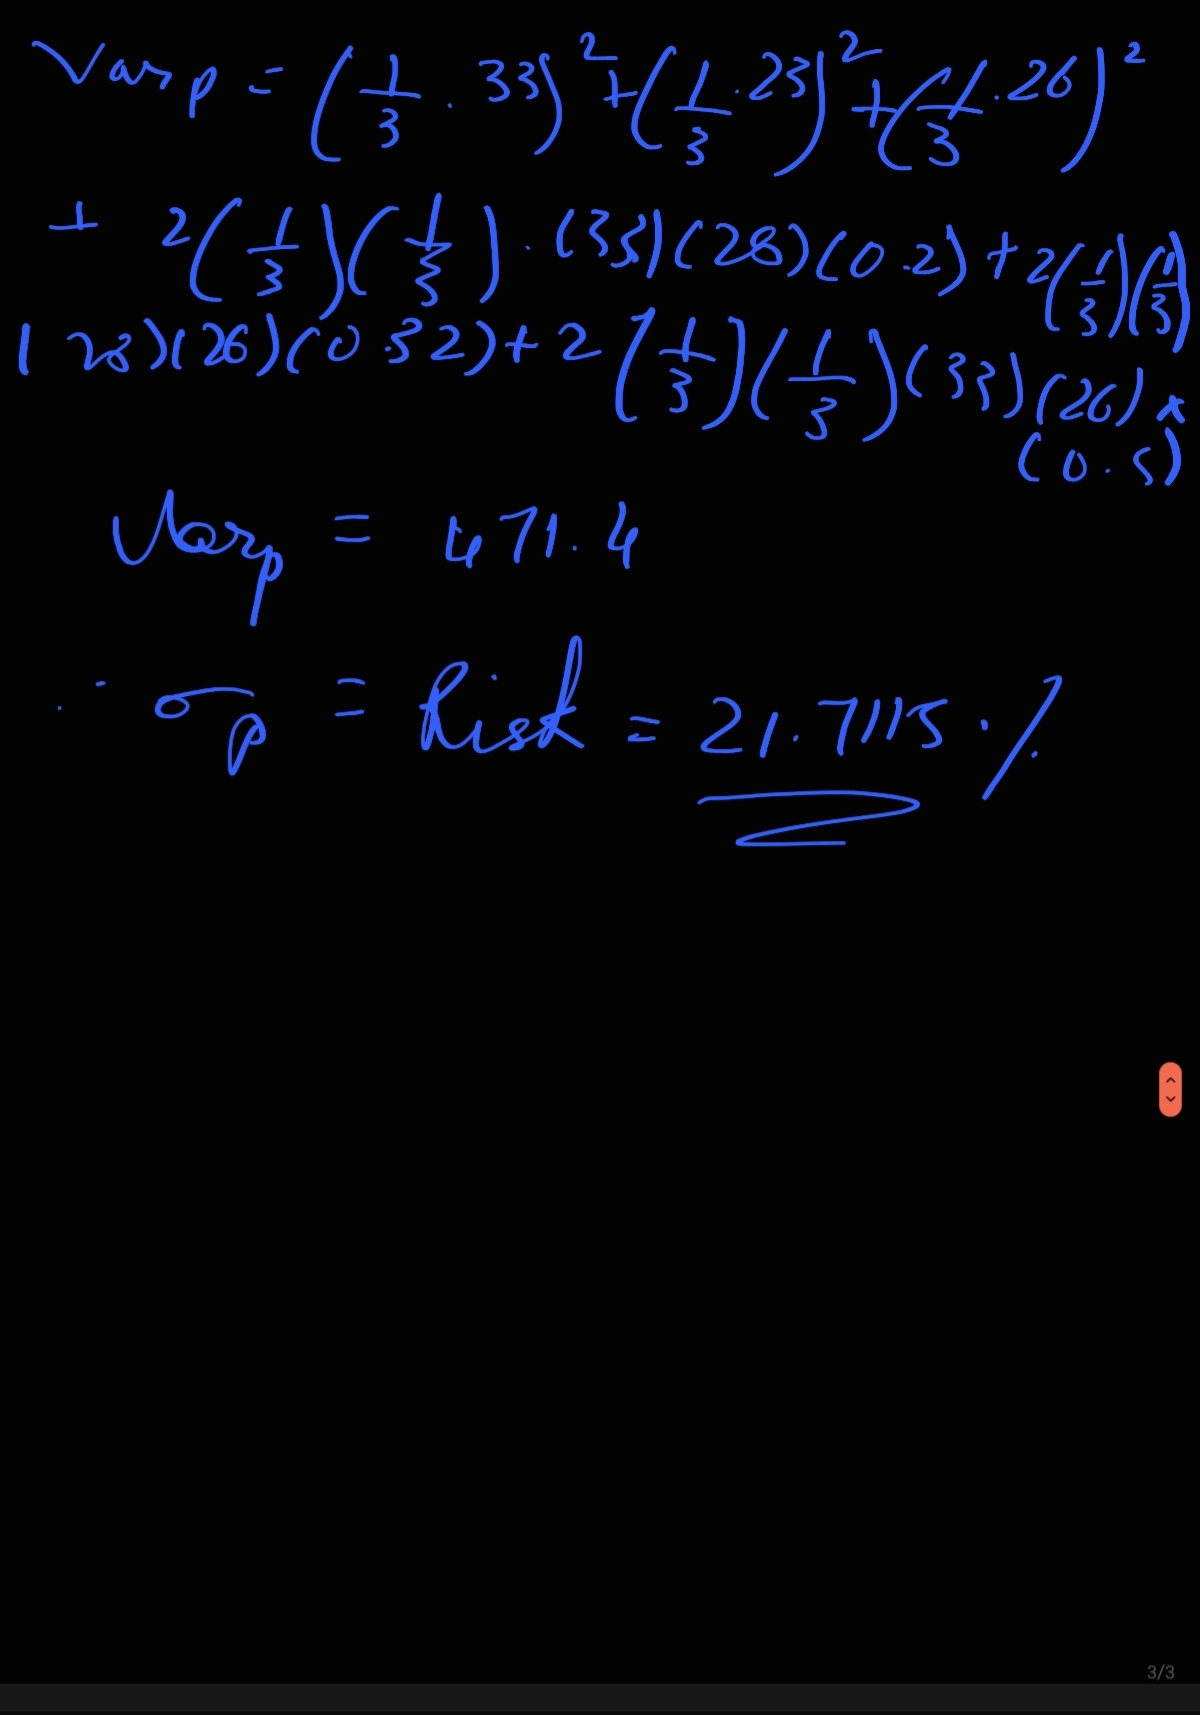 Var p = (1/3 . 33)² + (1/3 . 23)² + (1/3 . 26)²
+ 2(1/3)(1/3) . (33)(28)(0.2) + 2(1/3)(1/3)
(28)(26)(0.32) + 2(1/3)(1/3)(33)(26) x
(0.5)
Varp = 471.4
∴ σp = Risk = 21.7115 %
3/3